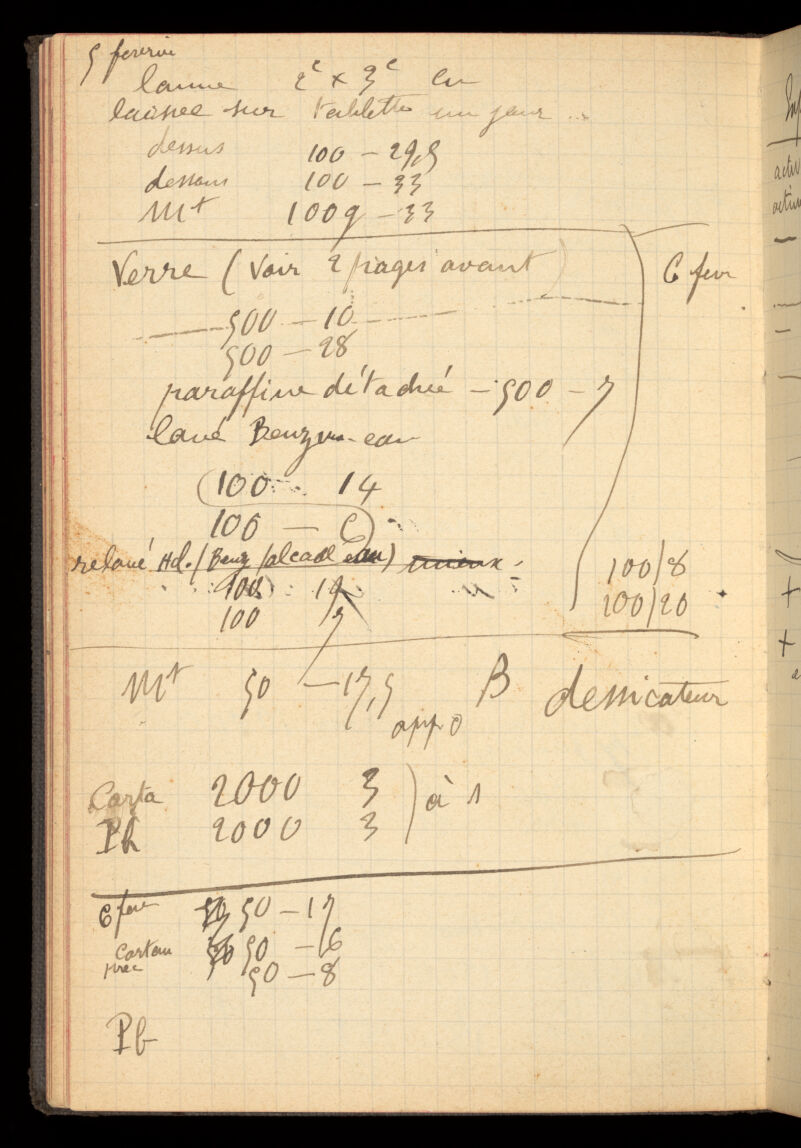 5 fevrier
lame 2c x 3c en
laissée sur tablette un jour ..
dessus 100 — 29,5
dessous 100 — 33
Mt 100g — 33
Verre (Voir 2 pages avant)
6 fevr
500 — 10
500 — 28
paraffine détachée — 500 — 7
lavé Benzine - eau
100 14
100 —
relavé Hd. (Benz /alcool eau) mieux
100
100 7
100/8
100/20
Mt 50 — 17,5 B dessicateur
app 0
Carta 2000 3
Pb 2000 3
à 1
6 fevr 50 — 17
Carton 50 — 16
prec 50 — 8
Pb